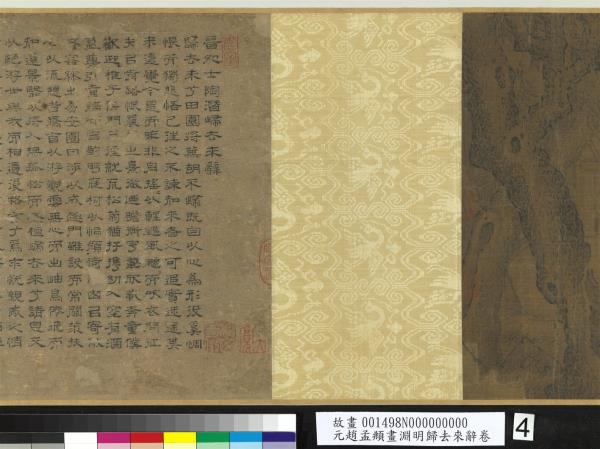 晉処士陶潛歸去來辭
歸去來兮田園將蕪胡不歸既自以心為形役奚惆
悵而獨悲悟已往之不諫知來者之可追實迷途其
未遠覺今是而昨非舟搖搖以輕颺風飄飄而吹衣問征
夫以前路恨晨光之熹微迺瞻衡宇載欣載奔童僕
歡迎稚子候門三徑就荒松菊猶存攜幼入室有酒
盈樽引壺觴以自酌眄庭柯以怡顏倚南窗以寄傲
審容膝之易安園日涉以成趣門雖設而常關策扶
老以流憩時矯首以游觀雲無心而出岫鳥倦飛而
知還景翳翳以將入撫孤松而盤桓歸去來兮請息交
以絕游世與我而相違復駕言兮焉求悅親戚之情
故畫 001498N000000000
元趙孟頫畫淵明歸去來辭卷
4